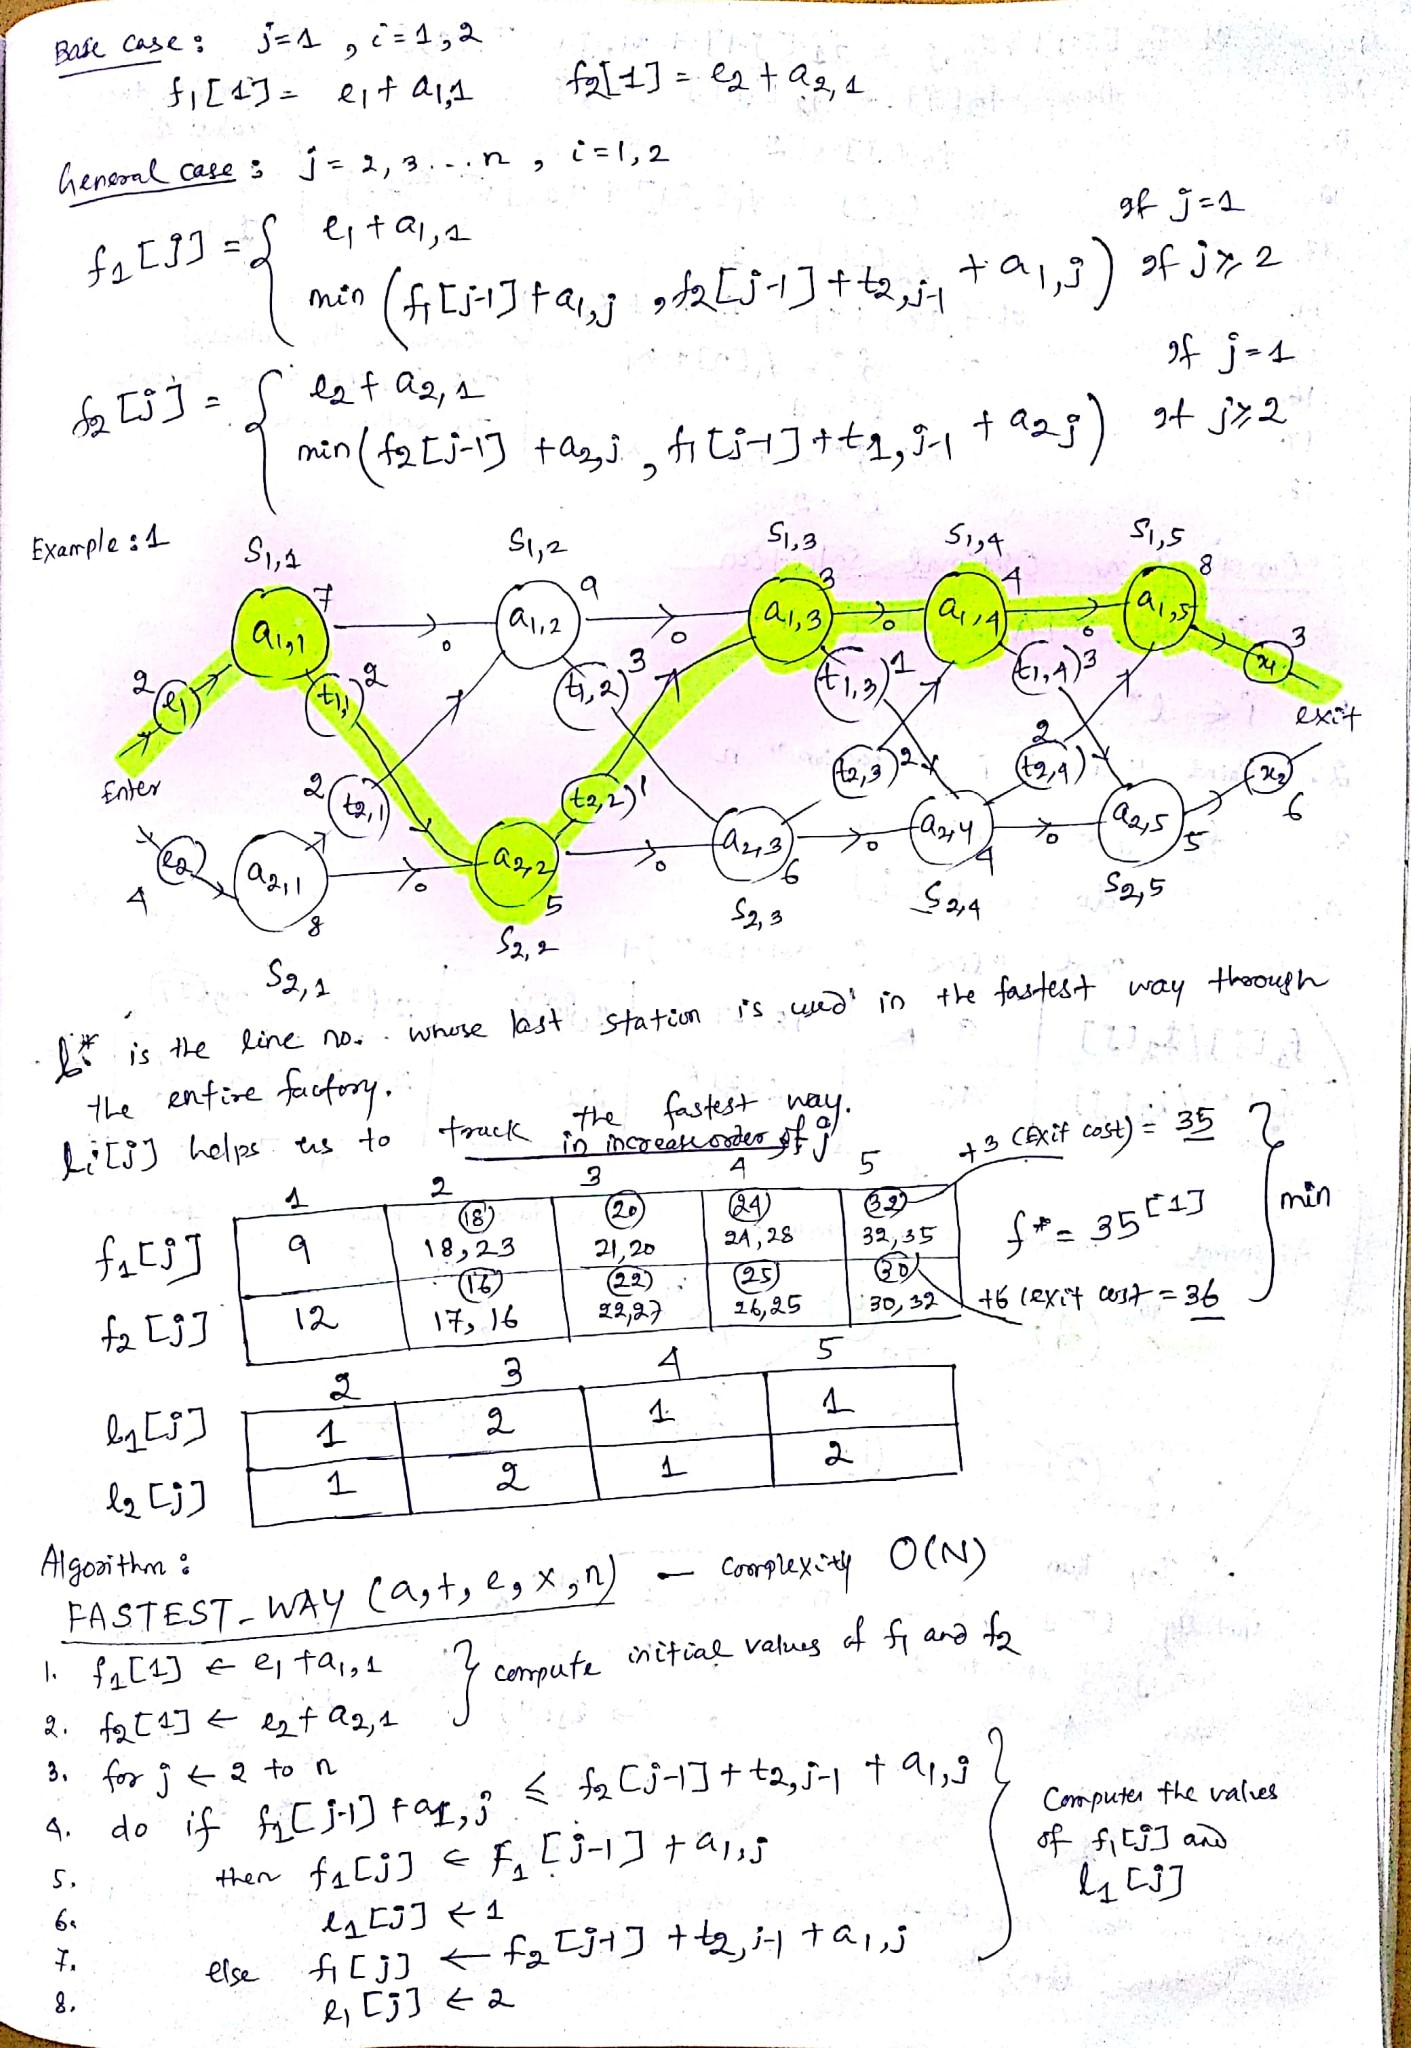 Base case : j=1 , i=1,2
f1[1] = e1 + a1,1 f2[1] = e2 + a2,1
General case : j = 2, 3...n , i=1,2
f1[j] = { e1 + a1,1 if j=1
min (f1[j-1] + a1,j , f2[j-1] + t2,j-1 + a1,j) if j≥2
f2[j] = { e2 + a2,1 if j=1
min (f2[j-1] + a2,j , f1[j-1] + t1,j-1 + a2j) if j≥2
Example : 1
S1,1 S1,2 S1,3 S1,4 S1,5
7 9 3 4 8
a1,1 0 a1,2 0 a1,3 0 a1,4 0 a1,5
2 e1 t1,1 2 t1,2 3 t1,3 1 t1,4 3 x1 3
exit
Enter 2 t2,1 t2,2 1 t2,3 2 t2,4 2 x2 6
4 e2 a2,1 0 a2,2 0 a2,3 0 a2,4 0 a2,5
8 5 6 4 5
S2,1 S2,2 S2,3 S2,4 S2,5
l* is the line no. whose last station is used in the fastest way through
the entire factory.
li[j] helps us to track the fastest way.
in increase order of j
1 2 3 4 5
+3 (Exit cost) = 35
f1[j] 9 18 18,23 20 21,20 24 24,28 32 32,35
f* = 35 [1] } min
f2[j] 12 16 17,16 22 22,27 25 26,25 30 30,32
+6 (exit cost = 36
2 3 4 5
l1[j] 1 2 1 1
l2[j] 1 2 1 2
Algorithm :
FASTEST_WAY (a,t,e,x,n) - complexity O(N)
1. f1[1] ← e1 + a1,1
2. f2[1] ← e2 + a2,1
} compute initial values of f1 and f2
3. for j ← 2 to n
4. do if f1[j-1] + a1,j ≤ f2[j-1] + t2,j-1 + a1,j
5. then f1[j] ← F1[j-1] + a1,j
6. l1[j] ← 1
7. else f1[j] ← f2[j-1] + t2,j-1 + a1,j
8. l1[j] ← 2
} Computes the values
of f1[j] and
l1[j]